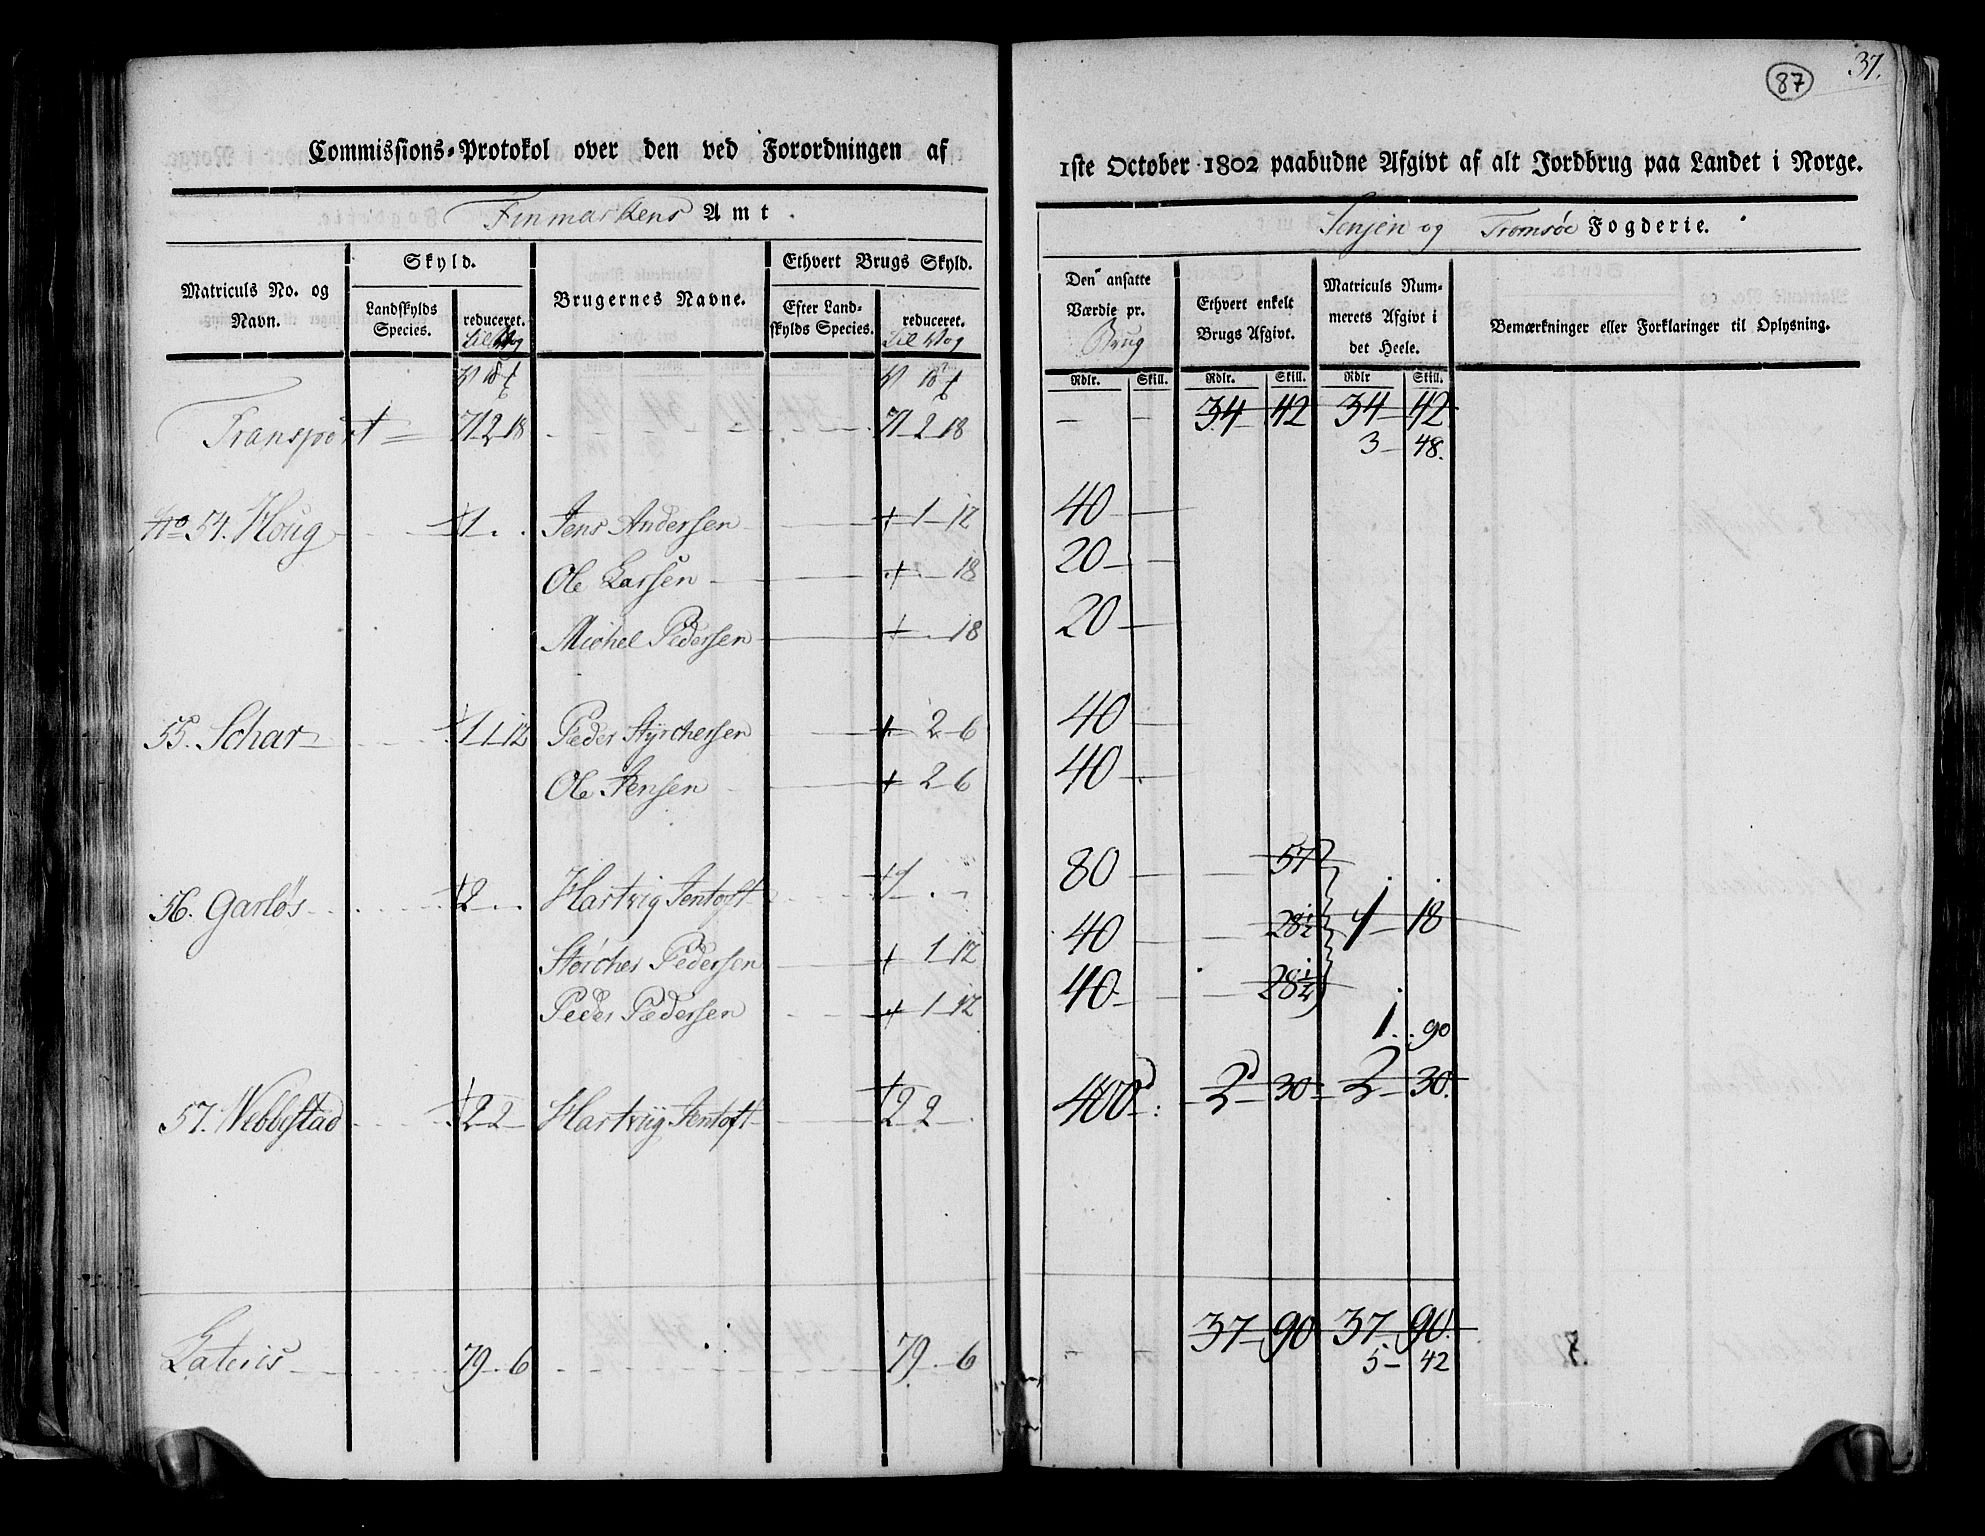 87
37.
Commissions-Protokol over den ved Forordningen af
1ste October 1802 paabudne Afgivt af alt Jordbrug paa Landet i Norge.
Finmarkens Amt.
Senjen og Tromsøe Fogderie.
Matriculs No. og Navn.
Skyld.
Landskylds Species.
reduceret.
Brugernes Navne.
Ethvert Brugs Skyld.
Efter Landskylds Species.
reduceret.
Den ansatte Værdie pr. Brug
Ethvert enkelt Brugs Afgivt.
Matriculs Nummerets Afgivt i det Heele.
Bemærkninger eller Forklaringer til Oplysning.
Rdlr. Skill. Rdlr. Skill. Rdlr Skill.
Transport 71 2 18 71 2 18 - - 34 42 34 42
3 48.
No 54. Houg 1 . . Jens Andersen 1 12 40 -
Ole Larsen . 18 20 -
Michel Pedersen . 18 20 -
55. Schar 1 1 12 Peder Styrchersen 2 6 40 -
Ole Jensen 2 6 40 -
56. Garløs 2 . . Hartvig Jentoft 1 . - 80 - 57
Størcher Pedersen 1 12 40 - 28½ 1 18
Peder Pedersen 1 12 40 - 28½
1 90
57. Nebbestad 2 2 - Hartviig Jentoft 2 2 - 400 - 2 30 2 30.
Lateris 79 . 6 79 . 6 - - 37 90 37 90.
5 42